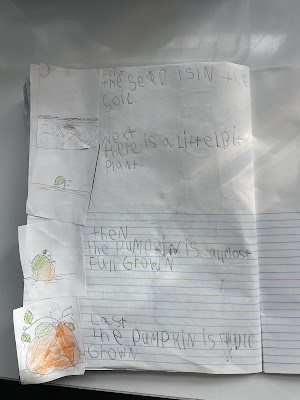 First
the SeeD ISIN the
Soil.
Next
there is a LittelBit
PLant.
theN
the PUMPKIN is almost
FUll GrowN
Last
the PUMPKIN is
GrowN